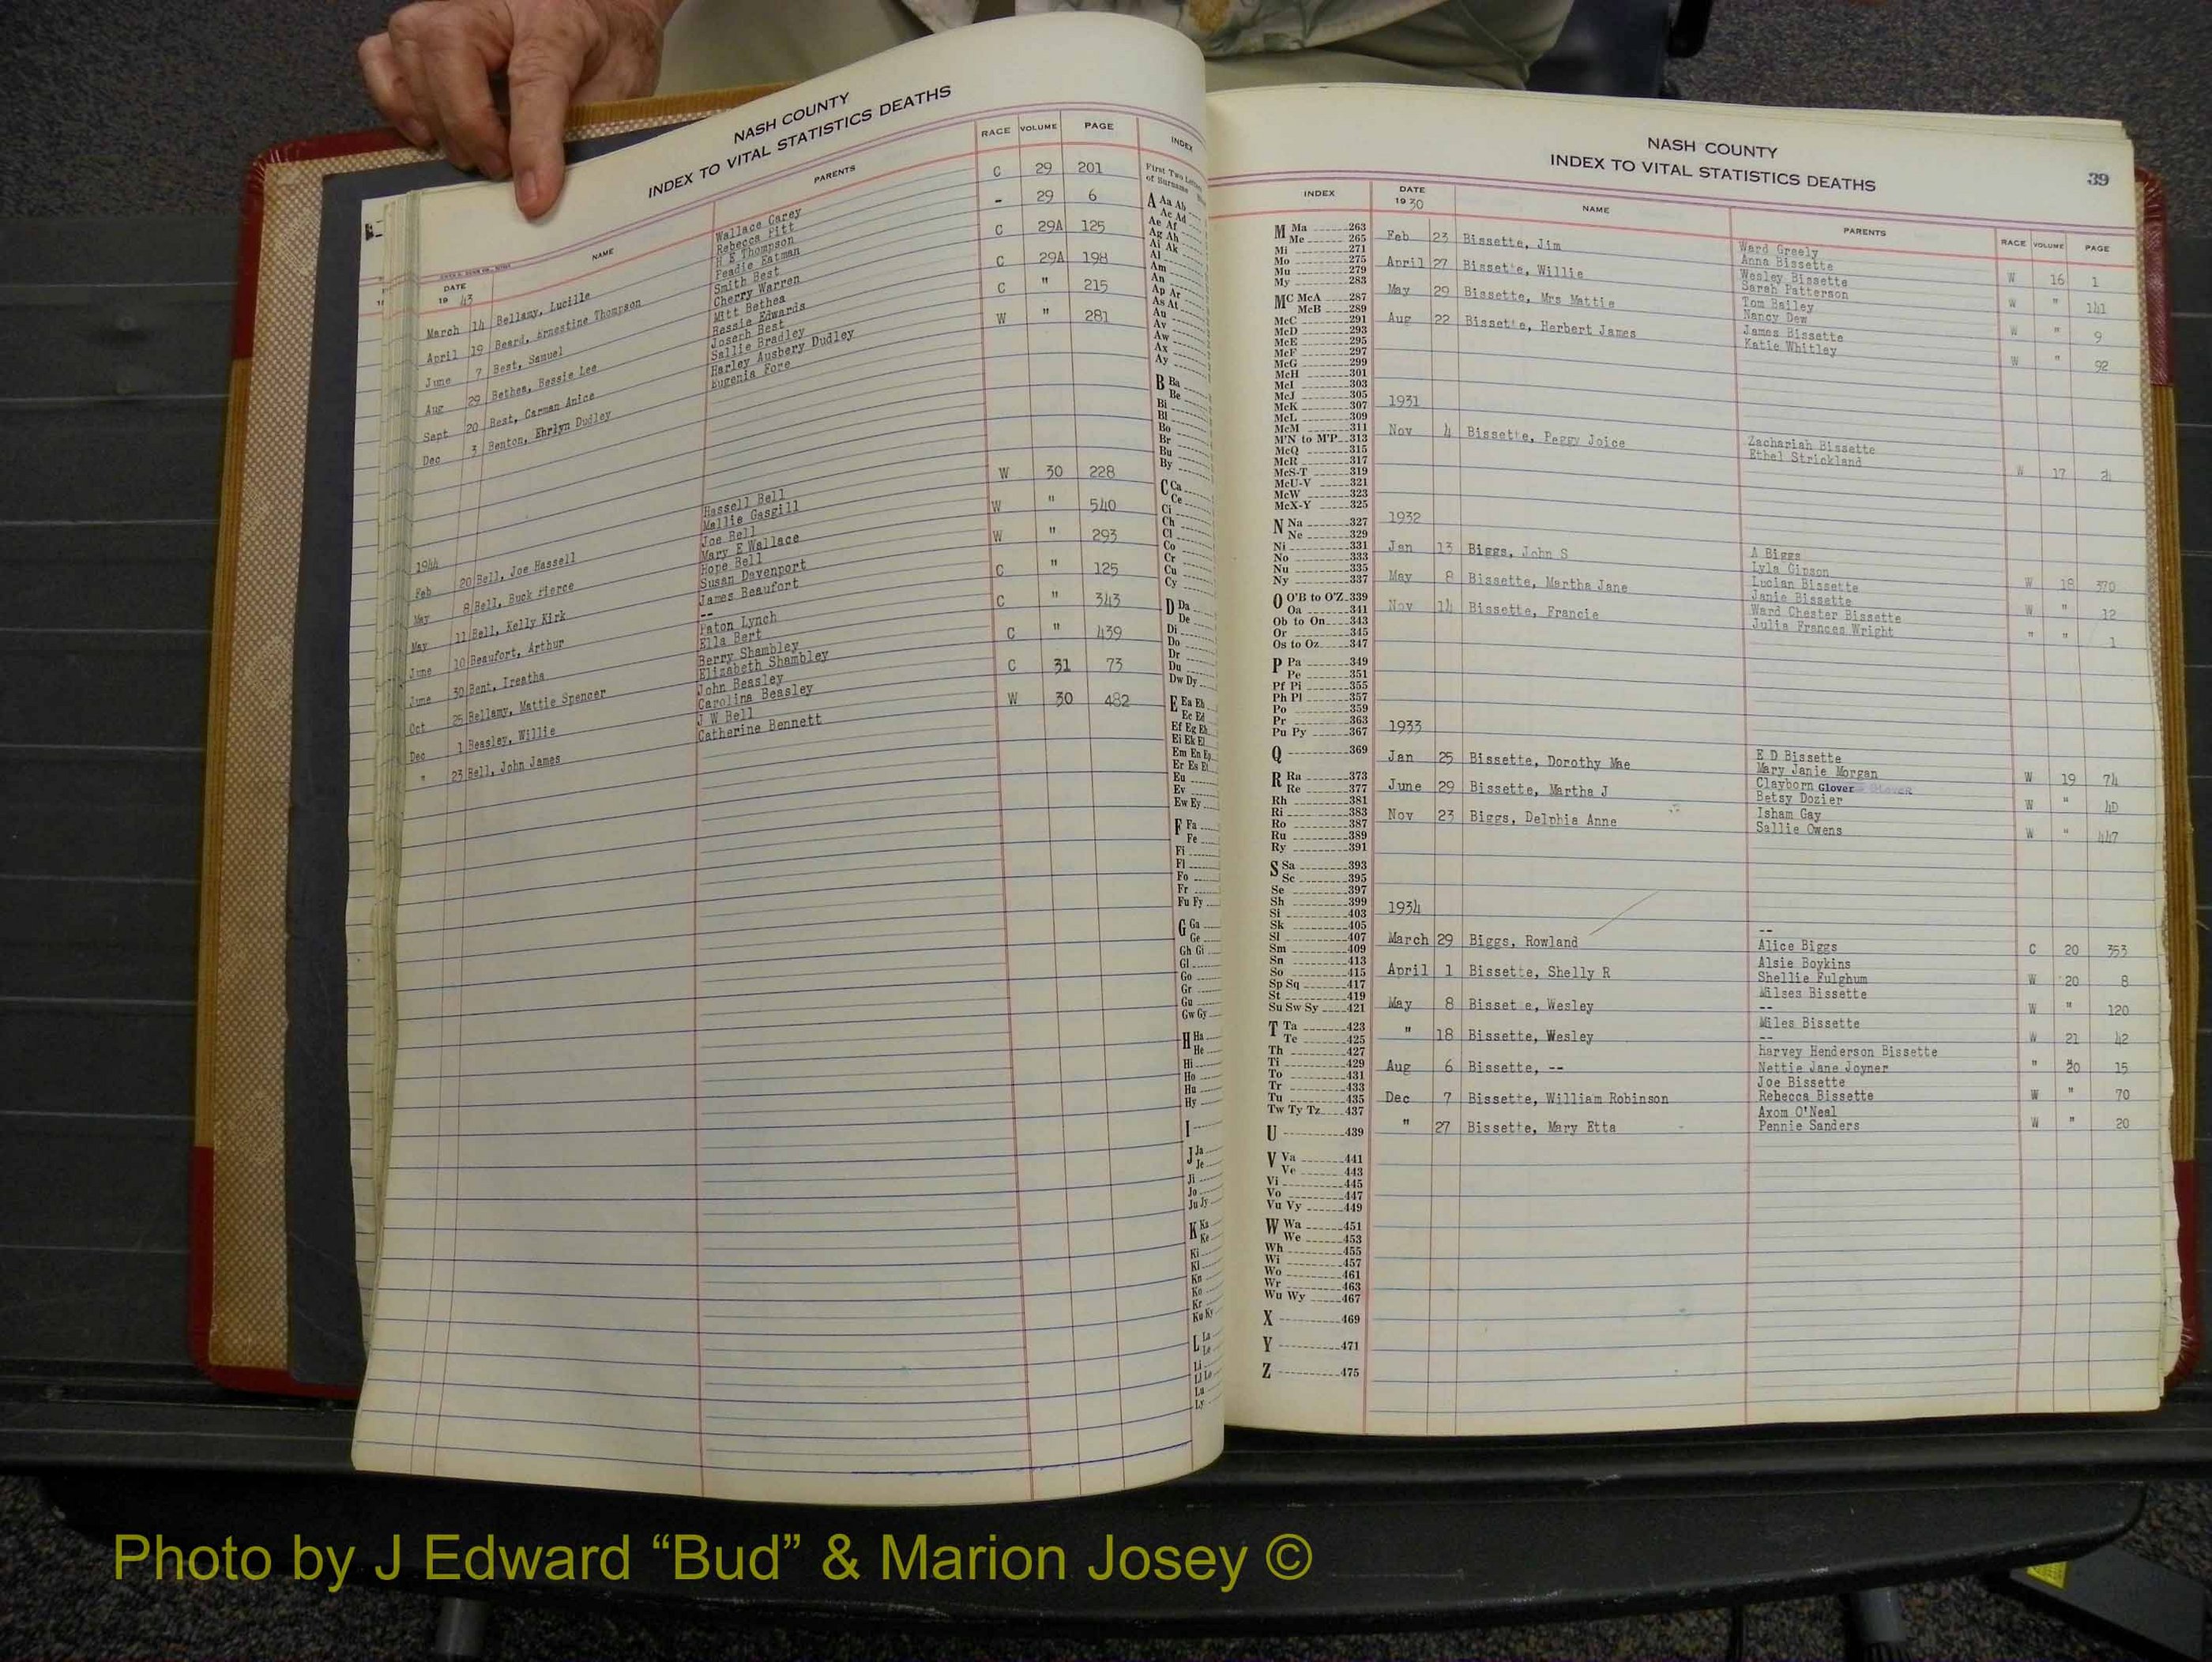 NASH COUNTY
INDEX TO VITAL STATISTICS DEATHS
DATE 19 43 NAME PARENTS RACE VOLUME PAGE
March 14 Bellamy, Lucille Wallace Carey C 29 201
Rebecca Pitt
April 19 Beard, Ernestine Thompson H E Thompson - 29 6
Feadie Eatman
June 7 Best, Samuel Smith Best C 29A 125
Cherry Warren
Aug 29 Bethea, Bessie Lee Mitt Bethea C 29A 198
Bessie Edwards
Sept 20 Best, Carman Anice Joseph Best C " 215
Sallie Bradley
Dec 3 Benton, Ehrlyn Dudley Harley Ausbery Dudley W " 281
Eugenia Fore
1944
Feb 20 Bell, Joe Hassell Hassell Bell W 30 228
Mallie Gasgill
May 8 Bell, Buck Pierce Joe Bell W " 540
Mary E Wallace
May 11 Bell, Kelly Kirk Hope Bell W " 293
Susan Davenport
June 10 Beaufort, Arthur James Beaufort C " 125
--
June 30 Bent, Ireatha Paton Lynch C " 343
Ella Bert
Oct 25 Bellamy, Mattie Spencer Berry Shambley C " 439
Elizabeth Shambley
Dec 1 Beasley, Willie John Beasley C 31 73
Carolina Beasley
" 23 Bell, John James J W Bell W 30 482
Catherine Bennett
INDEX
First Two Letters
of Surname
A Aa Ab
Ac Ad
Ae Af
Ag Ah
Ai Ak
Al
Am
An
Ap Ar
As At
Au
Av
Aw
Ax
Ay
B Ba
Be
Bi
Bl
Bo
Br
Bu
By
C Ca
Ce
Ci
Ch
Cl
Co
Cr
Cu
Cy
D Da
De
Di
Do
Dr
Du
Dw Dy
E Ea Eb
Ec Ed
Ef Eg Eh
Ei Ek El
Em En Ep
Er Es Et
Eu
Ev
Ew Ey
F Fa
Fe
Fi
Fl
Fo
Fr
Fu Fy
G Ga
Ge
Gh Gi
Gl
Go
Gr
Gu
Gw Gy
H Ha
He
Hi
Ho
Hu
Hy
I
J Ja
Je
Ji
Jo
Ju Jy
K Ka
Ke
Ki
Kl
Kn
Ko
Kr
Ku Ky
L La
Le
Li
Ll Lo
Lu
Ly
NASH COUNTY
INDEX TO VITAL STATISTICS DEATHS
39
INDEX
M Ma 263
Me 265
Mi 271
Mo 275
Mu 279
My 283
MC McA 287
McB 289
McC 291
McD 293
McE 295
McF 297
McG 299
McH 301
McI 303
McJ 305
McK 307
McL 309
McM 311
M'N to M'P 313
McQ 315
McR 317
McS-T 319
McU-V 321
McW 323
McX-Y 325
N Na 327
Ne 329
Ni 331
No 333
Nu 335
Ny 337
O O'B to O'Z 339
Oa 341
Ob to On 343
Or 345
Os to Oz 347
P Pa 349
Pe 351
Pf Pi 355
Ph Pl 357
Po 359
Pr 363
Pu Py 367
Q 369
R Ra 373
Re 377
Rh 381
Ri 383
Ro 387
Ru 389
Ry 391
S Sa 393
Sc 395
Se 397
Sh 399
Si 403
Sk 405
Sl 407
Sm 409
Sn 413
So 415
Sp Sq 417
St 419
Su Sw Sy 421
T Ta 423
Te 425
Th 427
Ti 429
To 431
Tr 433
Tu 435
Tw Ty Tz 437
U 439
V Va 441
Ve 443
Vi 445
Vo 447
Vu Vy 449
W Wa 451
We 453
Wh 455
Wi 457
Wo 461
Wr 463
Wu Wy 467
X 469
Y 471
Z 475
DATE 19 30 NAME PARENTS RACE VOLUME PAGE
Feb 23 Bissette, Jim Ward Greely W 16 1
Anna Bissette
April 27 Bissette, Willie Wesley Bissette W " 141
Sarah Patterson
May 29 Bissette, Mrs Mattie Tom Bailey W " 9
Nancy Dew
Aug 22 Bissette, Herbert James James Bissette W " 92
Katie Whitley
1931
Nov 4 Bissette, Peggy Joice Zachariah Bissette W 17
Ethel Strickland
1932
Jan 13 Biggs, John S A Biggs W 18 370
Lyla Gipson
May 8 Bissette, Martha Jane Lucian Bissette W " 12
Janie Bissette
Nov 14 Bissette, Francie Ward Chester Bissette " " 1
Julia Frances Wright
1933
Jan 25 Bissette, Dorothy Mae E D Bissette W 19 74
Mary Janie Morgan
June 29 Bissette, Martha J Clayborn Glover W " 40
Betsy Dozier
Nov 23 Biggs, Delphia Anne Isham Gay W " 447
Sallie Owens
1934
--
March 29 Biggs, Rowland Alice Biggs C 20 353
Alsie Boykins
April 1 Bissette, Shelly R Shellie Fulghum W 20 8
Milses Bissette
May 8 Bissette, Wesley -- W " 120
Miles Bissette
" 18 Bissette, Wesley -- W 21 42
Harvey Henderson Bissette
Aug 6 Bissette, -- Nettie Jane Joyner " 20 15
Joe Bissette
Dec 7 Bissette, William Robinson Rebecca Bissette W " 70
Axom O'Neal
" 27 Bissette, Mary Etta Pennie Sanders W " 20
Photo by J Edward “Bud” & Marion Josey ©